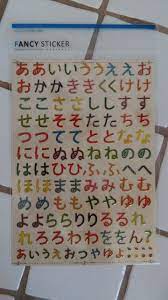 FANCY STICKER
ああいいううええお
おかかききくくけけ
ここささししすす
せせそそたたちち
つつててととなな
ににぬぬねねのの
ははひひふふへへ
ほほままみみむむ
めめももややゆゆ
よよららりりるるれ
れろろわわををん?
あいうえおつやゆよ